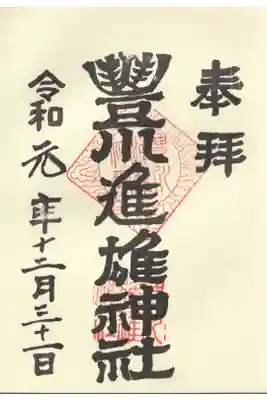 奉拝
豐川進雄神社
令和元年十二月三十一日